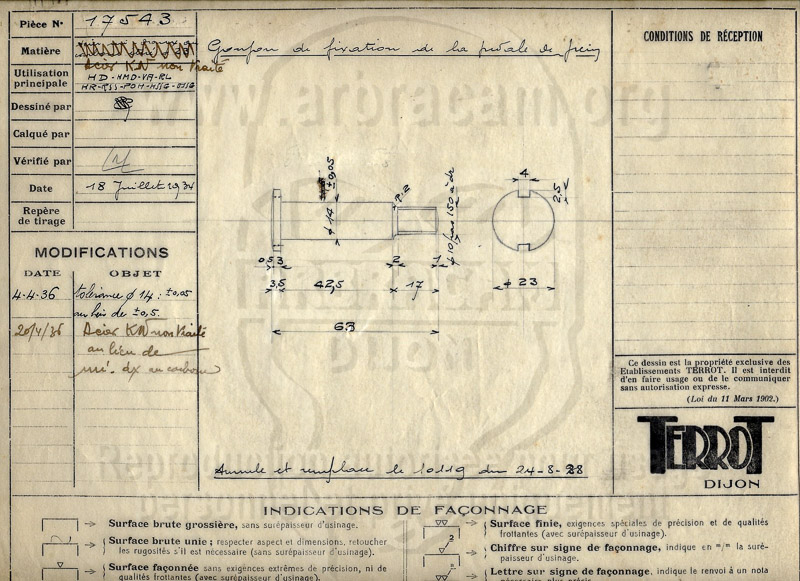 Pièce N° 17543
Matière
Acier KN non traité
Utilisation principale HD-HMD-VA-RL
HR-RSS-POH-HSSG-OSSG
Dessiné par
Calqué par
Vérifié par
Date 18 Juillet 1934
Repère de tirage
Goujon de fixation de la pédale de frein
CONDITIONS DE RÉCEPTION
www.arbracam.org
MODIFICATIONS
DATE OBJET
4-4-36 tolérance ϕ 14 : ±0,05
au lieu de ±0,5.
20/4/36 Acier KN non traité
au lieu de
mi. dx au carbone
±0,05
ϕ 14
R.2
ϕ 10 pas 150 à dr.
0,5 3 2 1
3,5 42,5 17
63
4
2,5
ϕ 23
Annule et remplace le 10119 du 24-8-28
Ce dessin est la propriété exclusive des
Etablissements TERROT. Il est interdit
d'en faire usage ou de le communiquer
sans autorisation expresse.
(Loi du 11 Mars 1902.)
TERROT
DIJON
INDICATIONS DE FAÇONNAGE
Surface brute grossière, sans surépaisseur d'usinage.
Surface brute unie ; respecter aspect et dimensions, retoucher
les rugosités s'il est nécessaire (sans surépaisseur d'usinage).
Surface façonnée sans exigences extrêmes de précision, ni de
qualités frottantes (avec surépaisseur d'usinage).
Surface finie, exigences spéciales de précision et de qualités
frottantes (avec surépaisseur d'usinage).
2
Chiffre sur signe de façonnage, indique en m/m la suré-
paisseur d'usinage.
Lettre sur signe de façonnage, indique le renvoi à un nota